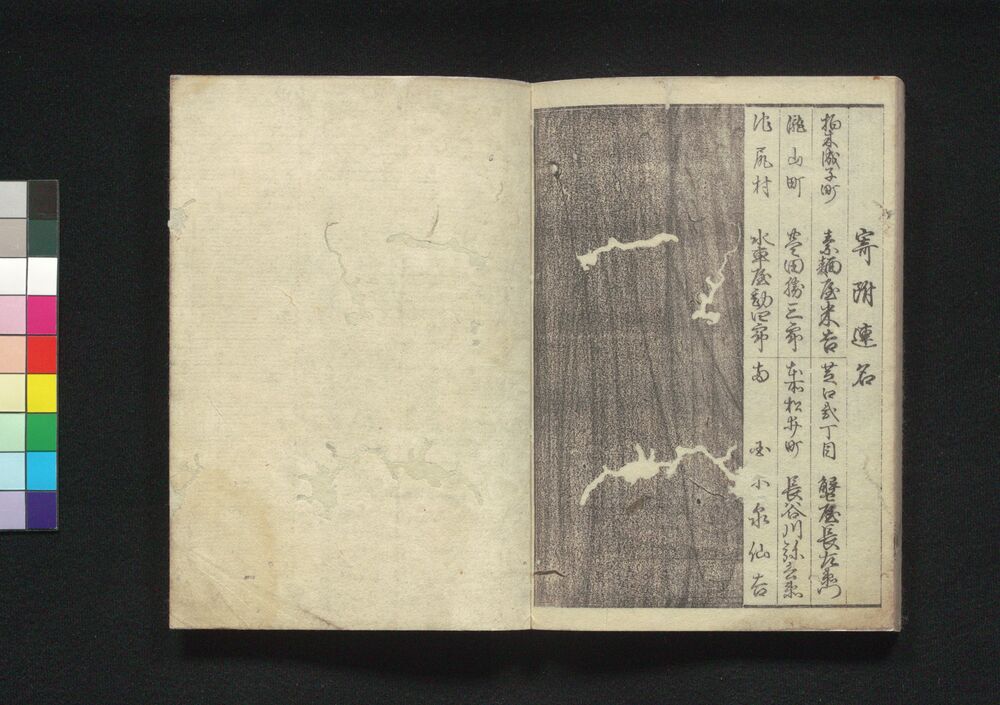 寄附連名
柏木成子町 素麺屋米吉
芝口弐丁目 蟹屋長左衛門
瀧山町 豊田勝三郎
本所松井町 長谷川弥兵衛
沼尻村 水車屋勘四郎
南 小泉仙吉